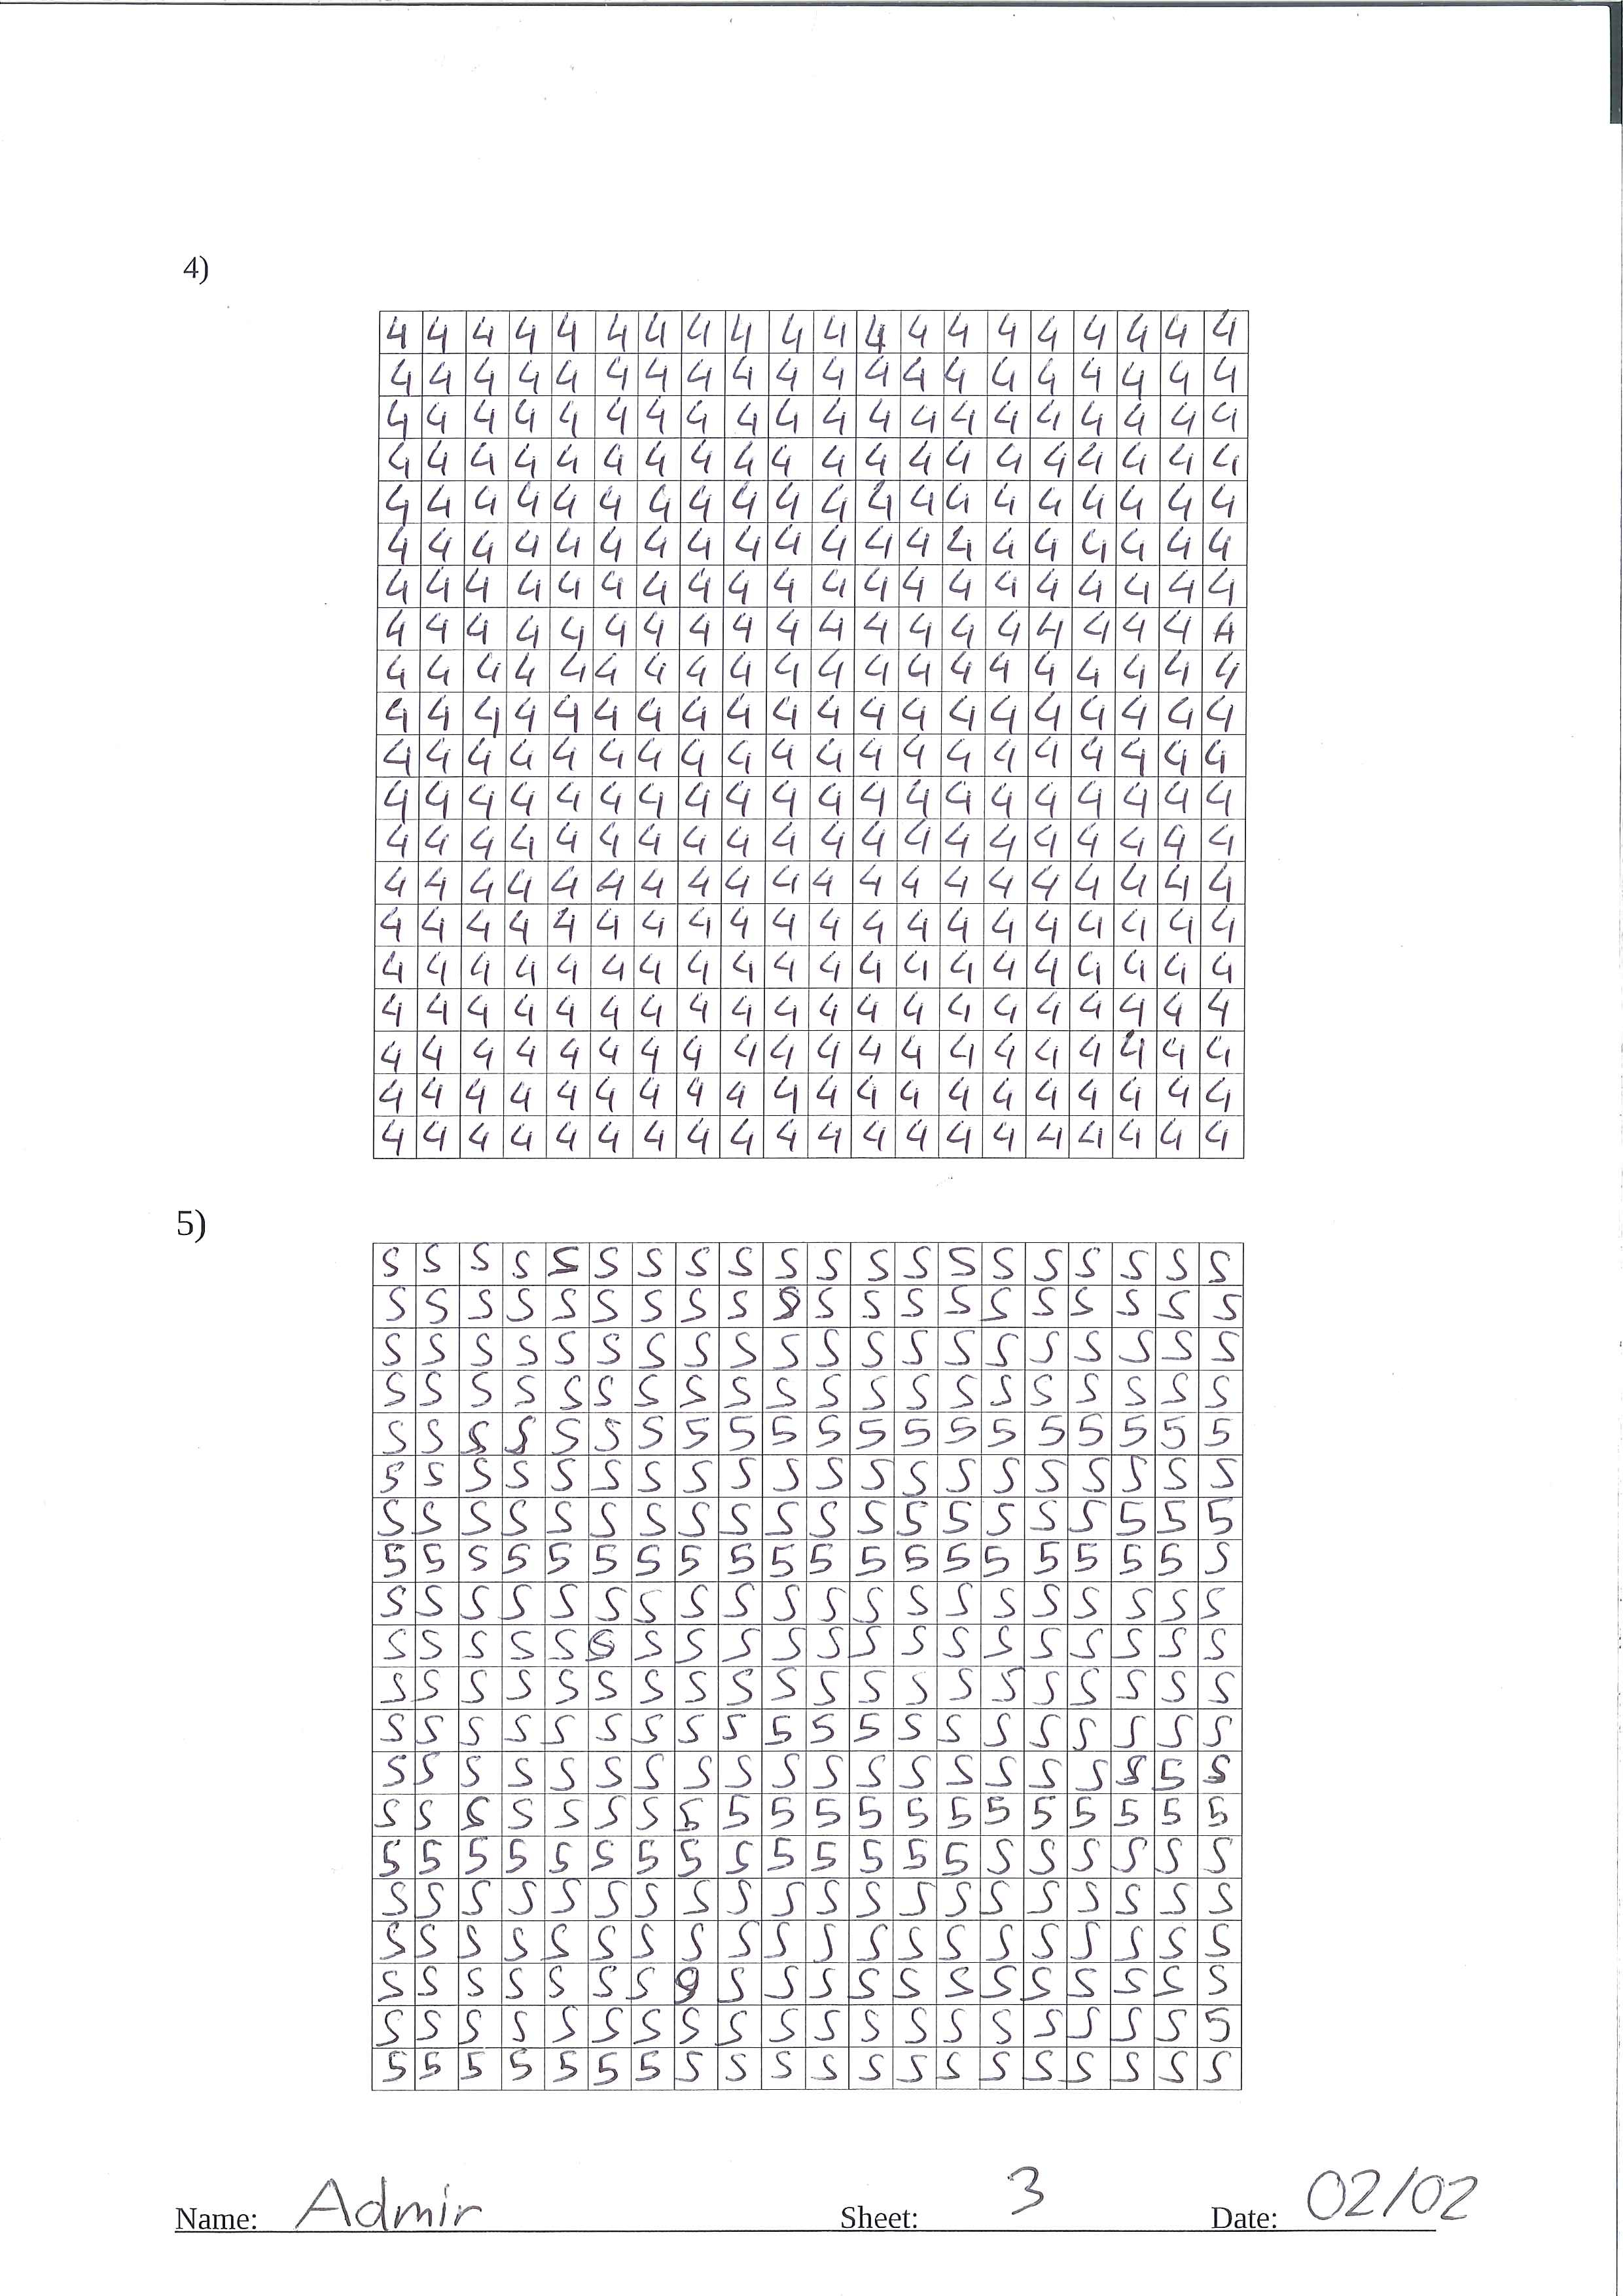 4)
4 4 4 4 4 4 4 4 4 4 4 4 4 4 4 4 4 4 4 4
4 4 4 4 4 4 4 4 4 4 4 4 4 4 4 4 4 4 4 4
4 4 4 4 4 4 4 4 4 4 4 4 4 4 4 4 4 4 4 4
4 4 4 4 4 4 4 4 4 4 4 4 4 4 4 4 4 4 4 4
4 4 4 4 4 4 4 4 4 4 4 4 4 4 4 4 4 4 4 4
4 4 4 4 4 4 4 4 4 4 4 4 4 4 4 4 4 4 4 4
4 4 4 4 4 4 4 4 4 4 4 4 4 4 4 4 4 4 4 4
4 4 4 4 4 4 4 4 4 4 4 4 4 4 4 4 4 4 4 4
4 4 4 4 4 4 4 4 4 4 4 4 4 4 4 4 4 4 4 4
4 4 4 4 4 4 4 4 4 4 4 4 4 4 4 4 4 4 4 4
4 4 4 4 4 4 4 4 4 4 4 4 4 4 4 4 4 4 4 4
4 4 4 4 4 4 4 4 4 4 4 4 4 4 4 4 4 4 4 4
4 4 4 4 4 4 4 4 4 4 4 4 4 4 4 4 4 4 4 4
4 4 4 4 4 4 4 4 4 4 4 4 4 4 4 4 4 4 4 4
4 4 4 4 4 4 4 4 4 4 4 4 4 4 4 4 4 4 4 4
4 4 4 4 4 4 4 4 4 4 4 4 4 4 4 4 4 4 4 4
4 4 4 4 4 4 4 4 4 4 4 4 4 4 4 4 4 4 4 4
4 4 4 4 4 4 4 4 4 4 4 4 4 4 4 4 4 4 4 4
4 4 4 4 4 4 4 4 4 4 4 4 4 4 4 4 4 4 4 4
4 4 4 4 4 4 4 4 4 4 4 4 4 4 4 4 4 4 4 4
5)
5 5 5 5 5 5 5 5 5 5 5 5 5 5 5 5 5 5 5 5
5 5 5 5 5 5 5 5 5 5 5 5 5 5 5 5 5 5 5
5 5 5 5 5 5 5 5 5 5 5 5 5 5 5 5 5 5 5 5
5 5 5 5 5 5 5 5 5 5 5 5 5 5 5 5 5 5 5 5
5 5 5 5 5 5 5 5 5 5 5 5 5 5 5 5 5 5 5 5
5 5 5 5 5 5 5 5 5 5 5 5 5 5 5 5 5 5 5 5
5 5 5 5 5 5 5 5 5 5 5 5 5 5 5 5 5 5 5 5
5 5 5 5 5 5 5 5 5 5 5 5 5 5 5 5 5 5 5 5
5 5 5 5 5 5 5 5 5 5 5 5 5 5 5 5 5 5 5 5
5 5 5 5 5 5 5 5 5 5 5 5 5 5 5 5 5 5 5
5 5 5 5 5 5 5 5 5 5 5 5 5 5 5 5 5 5 5 5
5 5 5 5 5 5 5 5 5 5 5 5 5 5 5 5 5 5 5 5
5 5 5 5 5 5 5 5 5 5 5 5 5 5 5 5 5 5 5 5
5 5 5 5 5 5 5 5 5 5 5 5 5 5 5 5 5 5 5 5
5 5 5 5 5 5 5 5 5 5 5 5 5 5 5 5 5 5 5 5
5 5 5 5 5 5 5 5 5 5 5 5 5 5 5 5 5 5 5 5
5 5 5 5 5 5 5 5 5 5 5 5 5 5 5 5 5 5 5 5
5 5 5 5 5 5 5 5 5 5 5 5 5 5 5 5 5 5 5
5 5 5 5 5 5 5 5 5 5 5 5 5 5 5 5 5 5 5 5
5 5 5 5 5 5 5 5 5 5 5 5 5 5 5 5 5 5 5 5
Name: Admir Sheet: 3 Date: 02/02